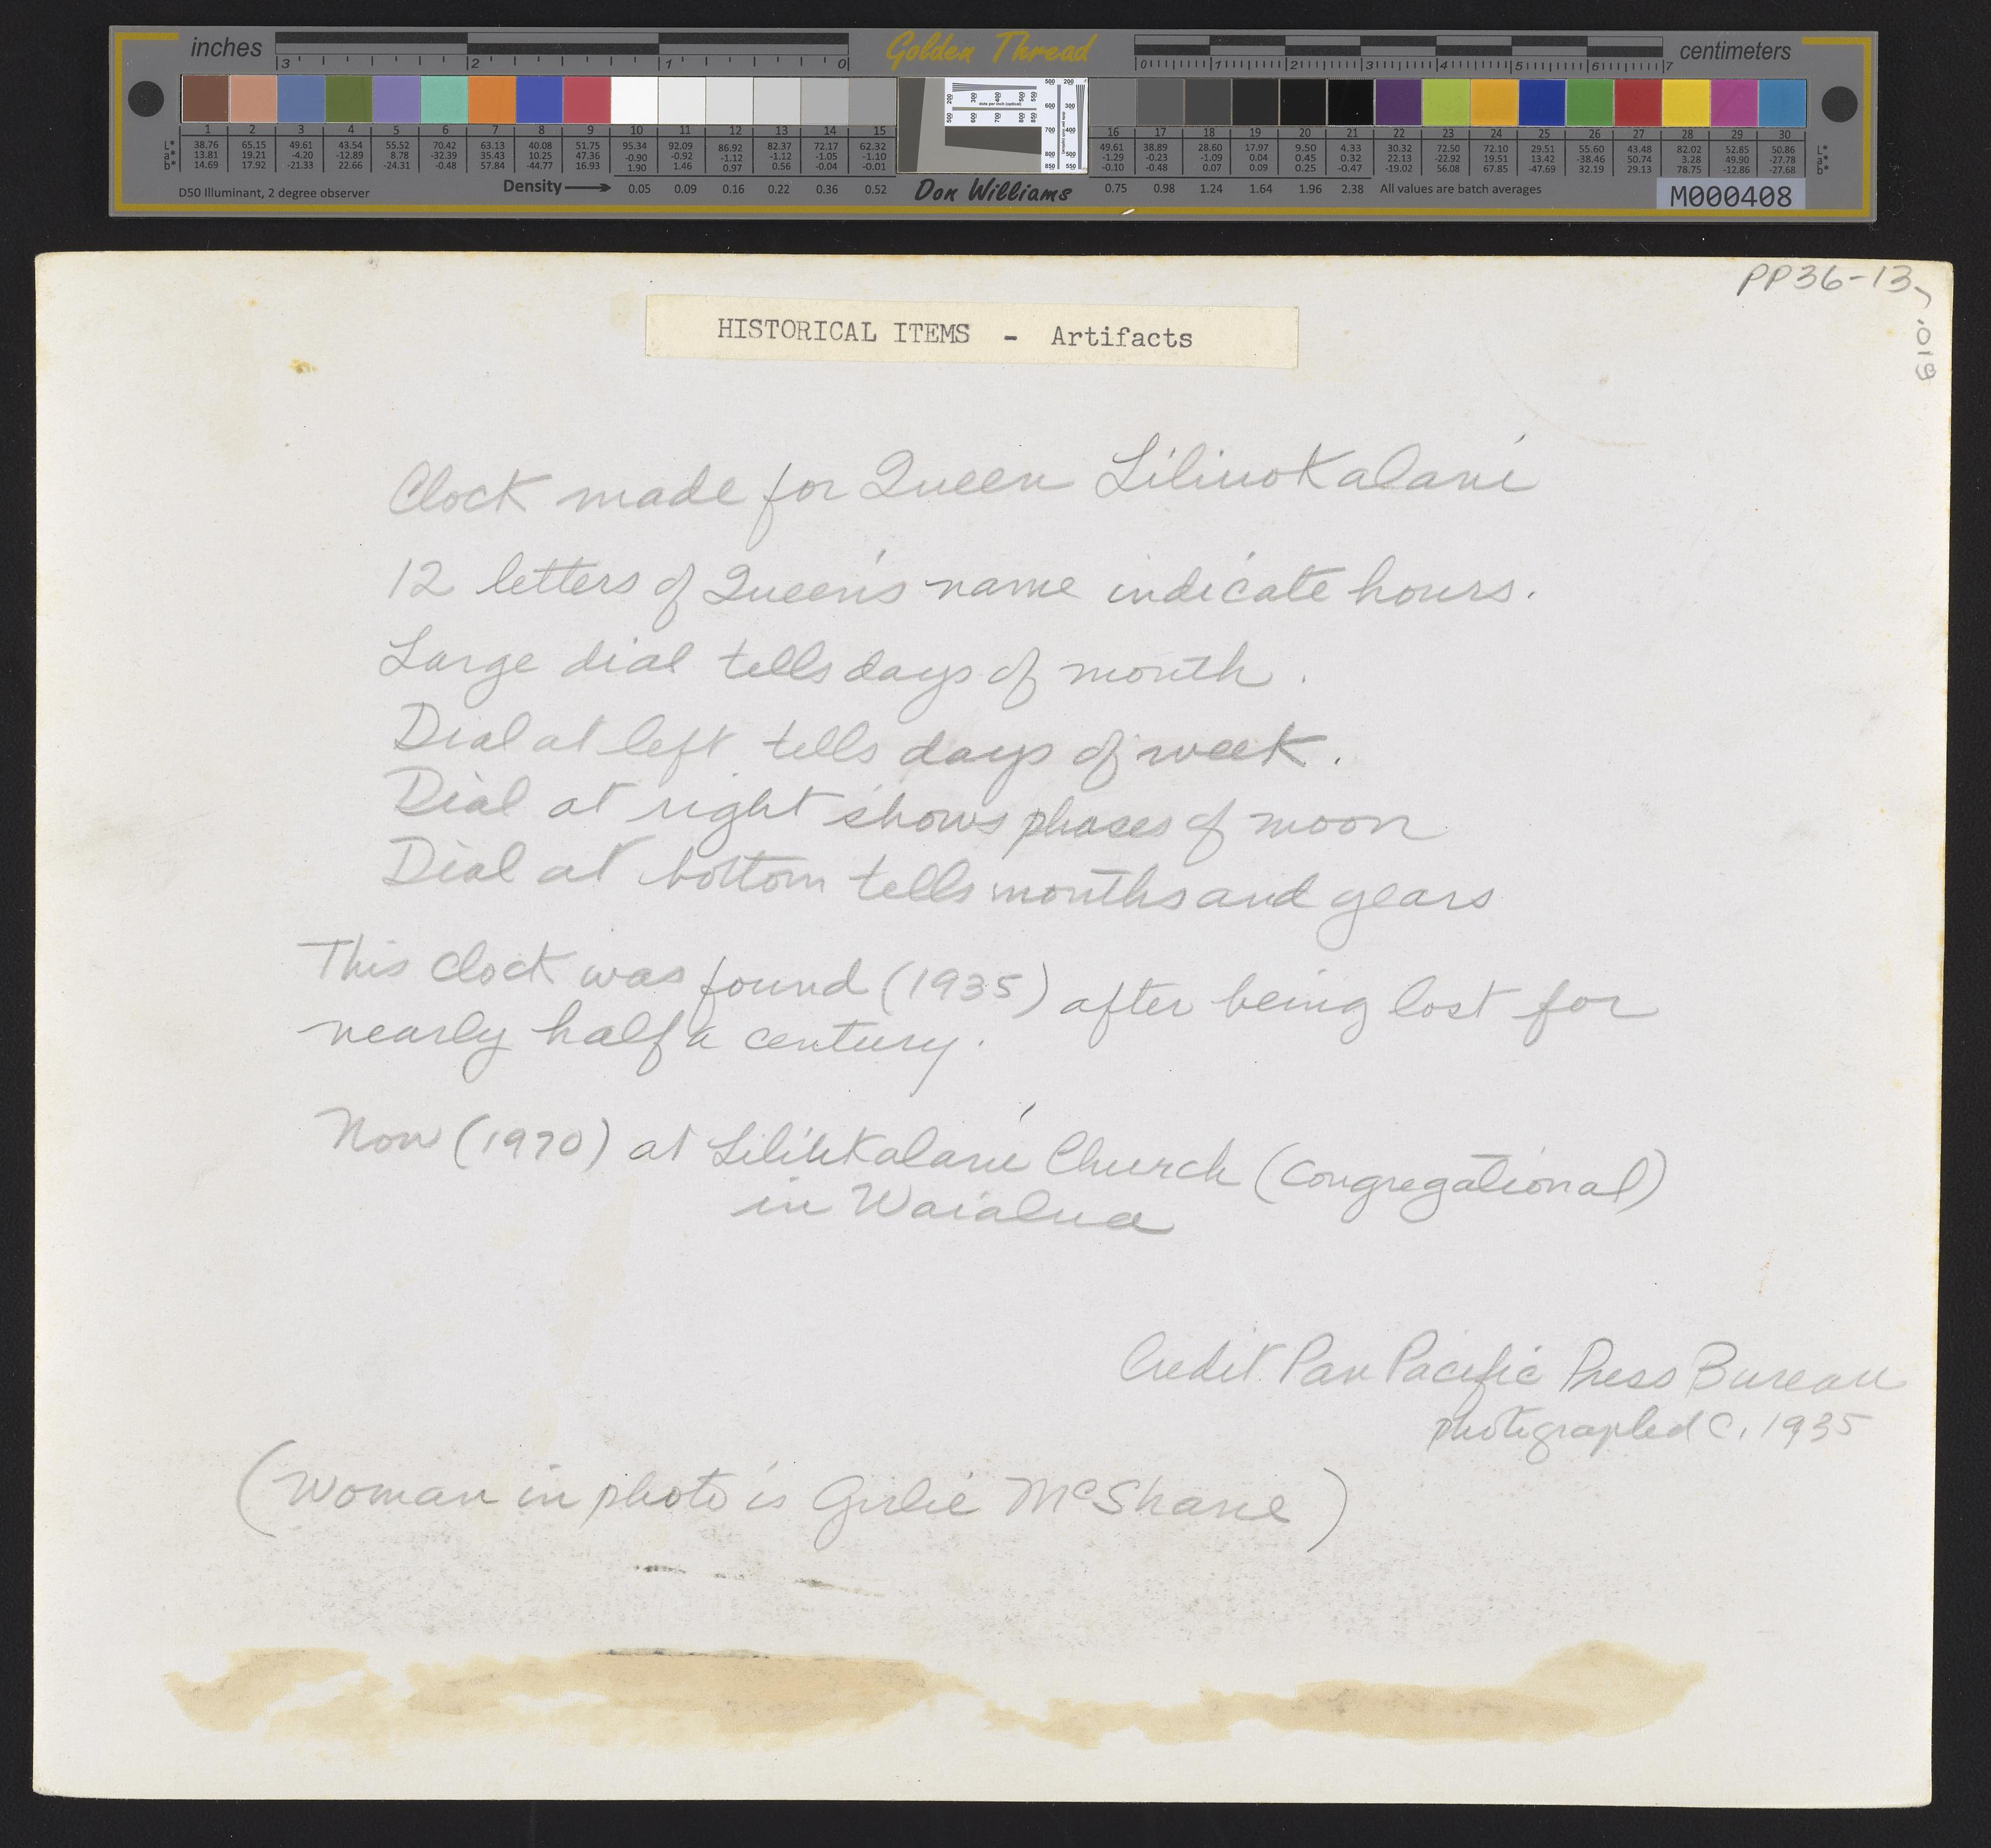 inches 3 2 1 0 Golden Thread 0 1 2 3 4 5 6 7 centimeters
1 2 3 4 5 6 7 8 9 10 11 12 13 14 15 16 17 18 19 20 21 22 23 24 25 26 27 28 29 30
L* 38.76 65.15 49.61 43.54 55.52 70.42 63.13 40.08 51.75 95.34 92.09 86.92 82.37 72.17 62.32 49.61 38.89 28.60 17.97 9.50 4.33 30.32 72.50 72.10 29.51 55.60 43.48 82.02 52.85 50.86 L*
a* 13.81 19.21 -4.20 -12.89 8.78 -32.39 35.43 10.25 47.36 -0.90 -0.92 -1.12 -1.12 -1.05 -1.10 -1.29 -0.23 -1.09 0.04 0.45 0.32 22.13 -22.92 19.51 13.42 -38.46 50.74 3.28 49.90 -27.78 a*
b* 14.69 17.92 -21.33 22.66 -24.31 -0.48 57.84 -44.77 16.93 1.90 1.46 0.97 0.56 -0.04 -0.01 -0.10 -0.48 0.07 0.09 0.25 -0.47 -19.02 56.08 67.85 -47.69 32.19 29.13 78.75 -12.86 -27.68 b*
D50 Illuminant, 2 degree observer Density 0.05 0.09 0.16 0.22 0.36 0.52 Don Williams 0.75 0.98 1.24 1.64 1.96 2.38 All values are batch averages M000408
PP36-13
.019
HISTORICAL ITEMS - Artifacts
Clock made for Queen Liliuokalani
12 letters of Queen's name indicate hours.
Large dial tells days of month.
Dial at left tells days of week.
Dial at right shows phases of moon
Dial at bottom tells months and years
This clock was found (1935) after being lost for
nearly half a century.
Now (1970) at Church (Congregational)
in Waialua
Credit Pan Pacific Press Bureau
photographed c. 1935
(Woman in photo is Girlie McShane)